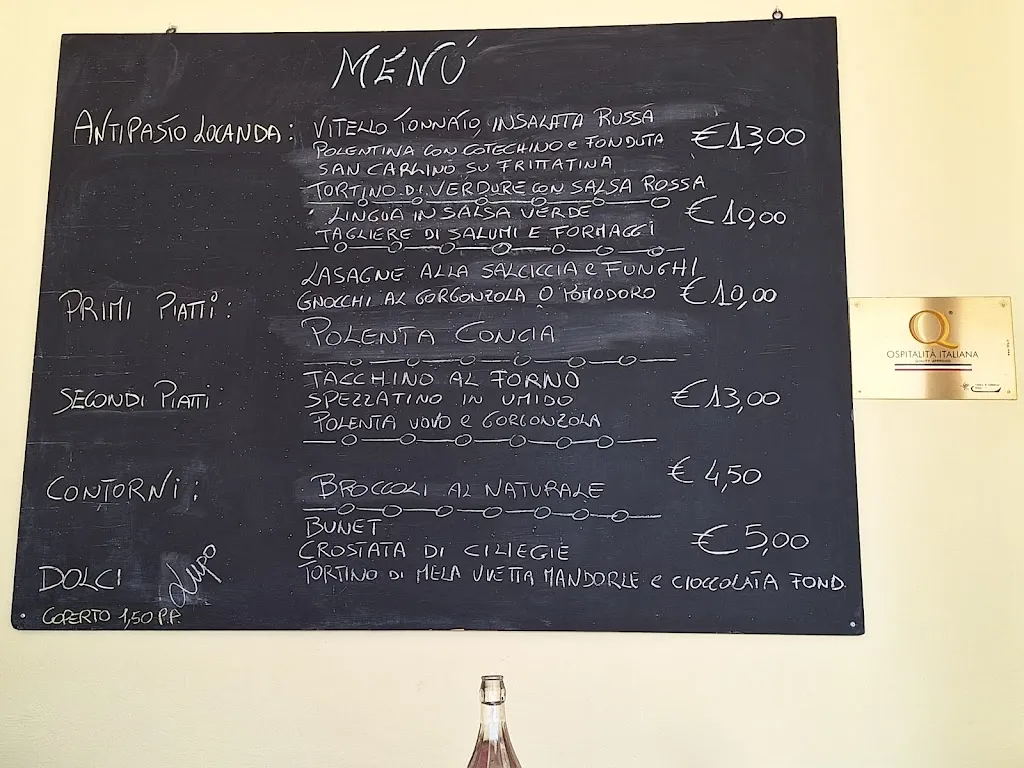 MENÚ
ANTIPASTO LOCANDA: VITELLO TONNATO, INSALATA RUSSA €13,00
POLENTINA CON COTECHINO e FONDUTA
SAN CARLINO SU FRITTATINA
TORTINO DI VERDURE CON SALSA ROSSA
LINGUA IN SALSA VERDE €10,00
TAGLIERE DI SALUMI E FORMAGGI
LASAGNE ALLA SALCICCIA e FUNGHI
PRIMI PIATTI: GNOCCHI AL GORGONZOLA O POMODORO €10,00
POLENTA CONCIA
TACCHINO AL FORNO
SECONDI PIATTI: SPEZZATINO IN UMIDO €13,00
POLENTA UOVO e GORGONZOLA
CONTORNI: BROCCOLI AL NATURALE €4,50
BUNET
CROSTATA DI CILIEGIE €5,00
DOLCI TORTINO DI MELA UVETTA MANDORLE e CIOCCOLATA FOND.
Lupo
COPERTO 1,50 P.P.
Q
OSPITALITÀ ITALIANA
QUALITY APPROVED